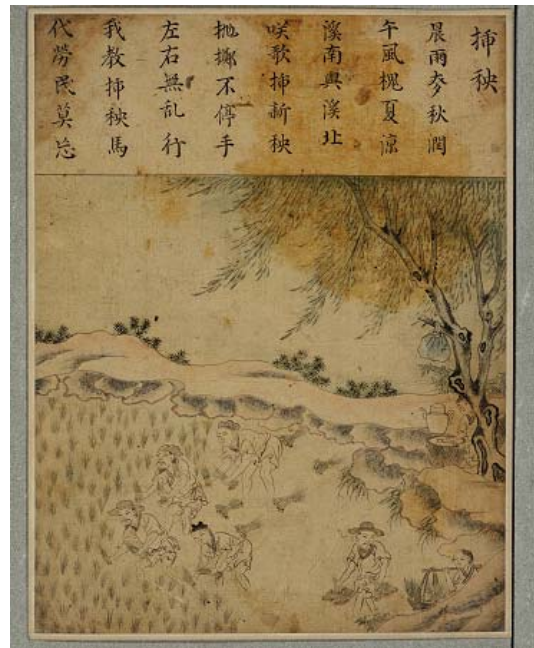 挿秧
晨雨麦秋潤
午風槐夏涼
溪南與溪北
咲歌挿新秧
拋擲不停手
左右無乱行
我教挿秧馬
代勞民莫忘